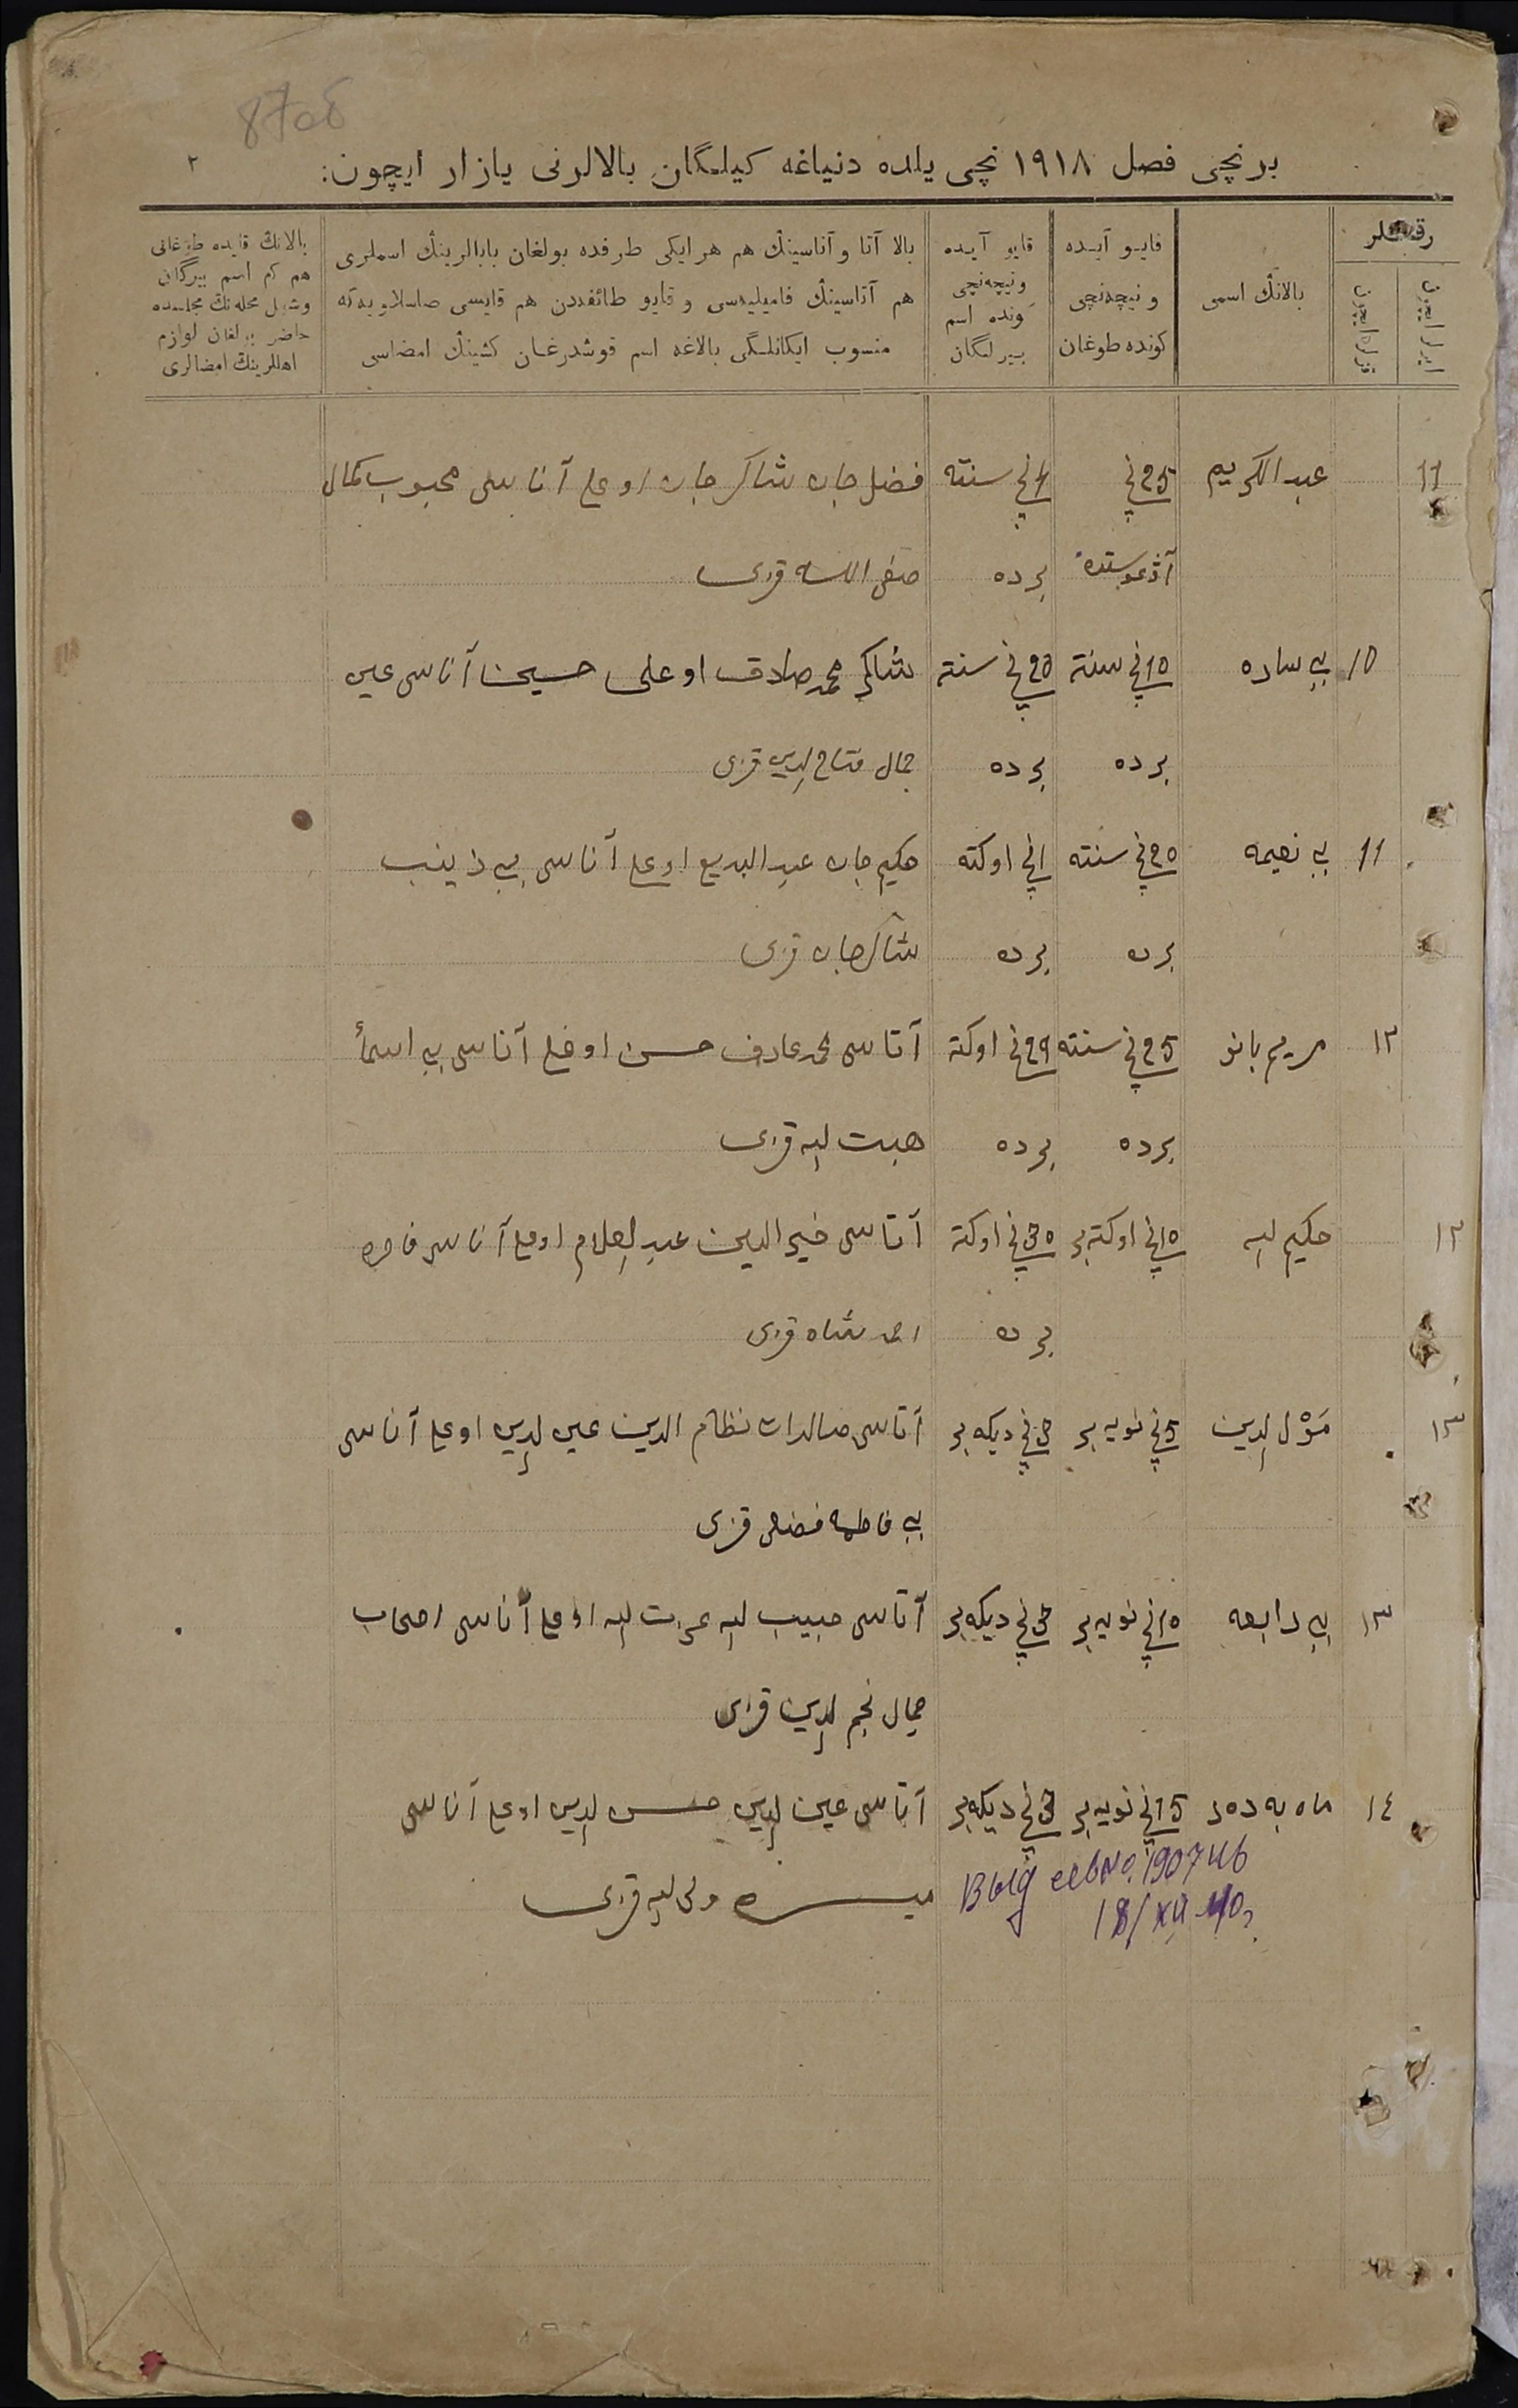 8708
برنچی فصل ١٩١٨ نچی یلده دنیاغه کیلمگان بالالرنی یازار ایچون:
٢
رقملر
ایرلر ایچون
قزلر ایچون
بالانڭ اسمی
قایو آیده
و نیچه‌نچی
کونده طوغان
قایو آیده
و نیچه‌نچی
کونده اسم
بیرلگان
بالا آتا و آناسینڭ هم هر ایکی طرفده بولغان بابالرینڭ اسملری
هم آتاسینڭ فامیلیه‌سی و قایو طائفه‌دن هم قایسی
منسوب ایکانلگی بالاغه اسم قوشدرغان کشینڭ امضاسی
بالانڭ قایده طوغانی
هم کم اسم بیرگان
وشول محله‌نڭ مجلسده
حاضر بولغان لوازم
اهللرینڭ امضالری
11 عبدالکریم 25نچی 1نچی سنته فضل جان شاکر جان اوغلی آناسی محبوب کمال
آوغوستده برده صفی الله قزی
10 بی ساره 10نچی سنته 20نچی سنته شاکر محمد صادق اوغلی حسینا آناسی عین
برده برده جمال فتاح الدین قزی
11 بی نعیمه 20نچی سنته 1نچی اوکته حکیم جان عبدالبدیع اوغلی آناسی بی زینب
برده برده شاکرجان قزی
١٢ مریم بانو 25نچی سنته 29نچی اوکته آتاسی محمد عارف حسن اوغلی آناسی بی اسمأ
برده برده هبت الله قزی
١٢ حکیم الله 10نچی اوکته‌بر 30نچی اوکته آتاسی خیر الدین عبد العلام اوغلی آناسی
برده احمد شاه قزی
١٣ الدین 5نچی نویه‌بر 3نچی دیکه‌بر آتاسی نظام الدین عین الدین اوغلی آناسی
بی فاطمه فضلی قزی
١٣ بی رابعه 10نچی نویه‌بر 3نچی دیکه‌بر آتاسی حبیب الله عزت الله اوغلی آناسی اصحاب
جمال نجم الدین قزی
١٤ ماه به‌دەر 15نچی نویه‌بر 3نچی دیکه‌بر آتاسی عین الدین حسن الدین اوغلی آناسی
ولی الله قزی
Выд № 190746
18/XII